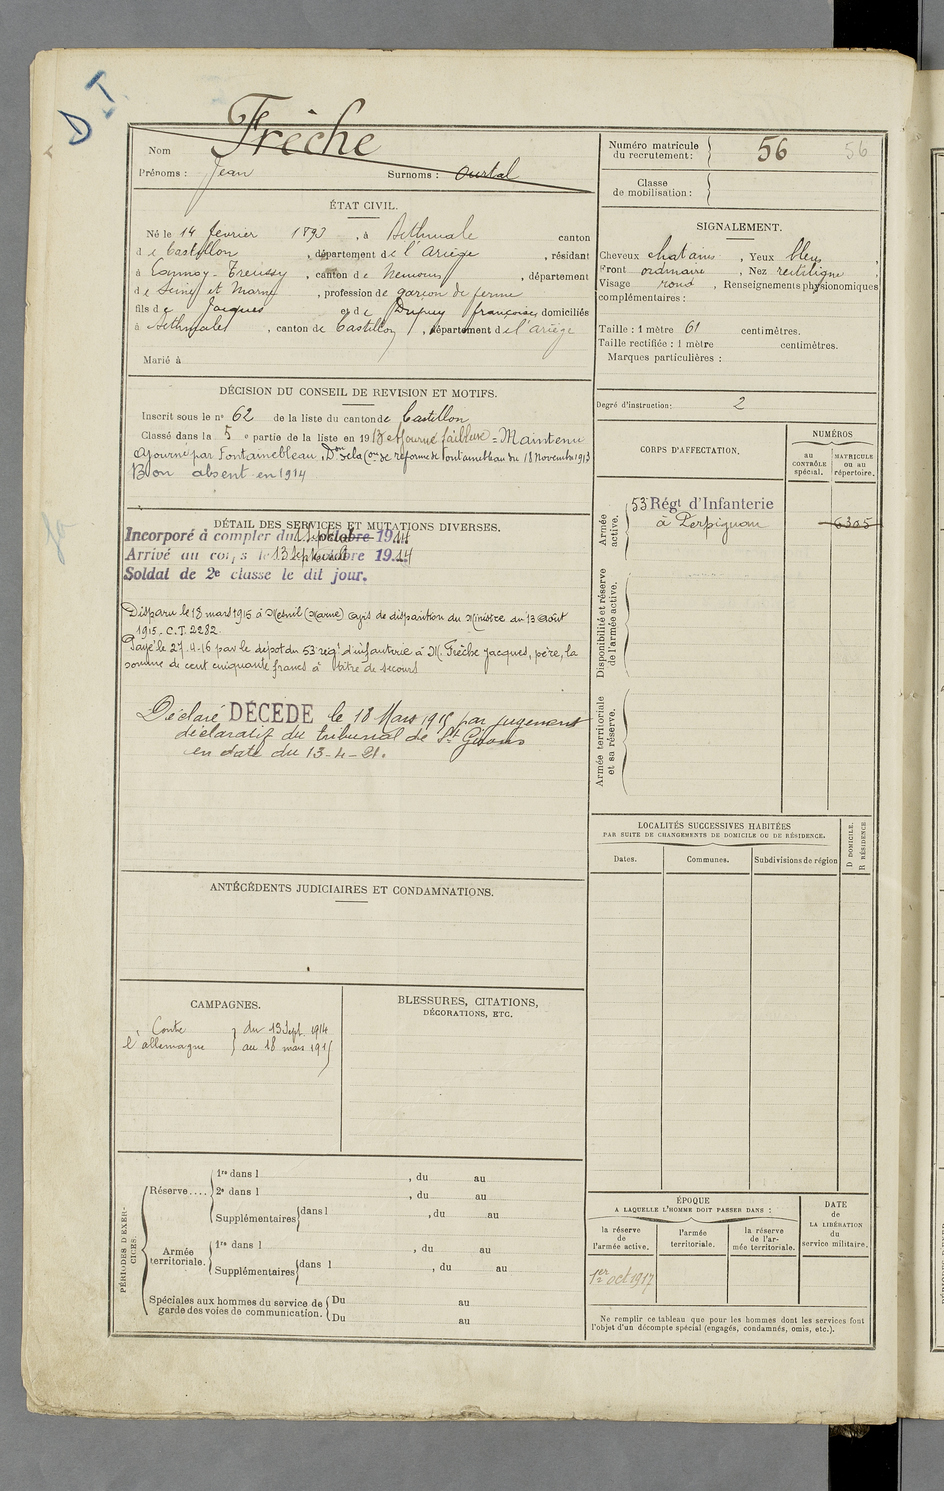 D T
Nom Frèche
Prénoms : Jean Surnoms : Ourtal
ÉTAT CIVIL.
Né le 14 février 1893, à Bethmale canton
de Castillon, département de l'Ariège, résidant
à Treuzy, canton de Nemours, département
de Seine et Marne, profession de garçon de ferme
fils de Jacques et de Dupuy françoise, domiciliés
à Bethmale, canton de Castillon, département de l'ariège
Marié à
DÉCISION DU CONSEIL DE REVISION ET MOTIFS.
Inscrit sous le n° 62 de la liste du canton de Castillon
Classé dans la 5e partie de la liste en 1913 Ajourné faiblesse = Maintenu
ajourné par Fontainebleau, Don de la Con de réforme de Fontainebleau du 18 Novembre 1913
Bon absent en 1914
DÉTAIL DES SERVICES ET MUTATIONS DIVERSES.
Incorporé à compter du septembre 1914
Arrivé au corps le 13 septembre 1914
Soldat de 2e classe le dit jour.
Disparu le 18 mars 1915 à Mesnil (Marne) avis de disparition du Ministre du 13 août
1915. C.T. 2282.
Payé le 27-4-16 par le dépôt du 53 régt d'infanterie à M. Frèche Jacques, père, la
somme de cent cinquante francs à titre de secours
Déclaré DÉCÉDÉ le 18 Mars 1915 par jugement
déclaratif du tribunal de St Girons
en date du 13-4-21.
ANTÉCÉDENTS JUDICIAIRES ET CONDAMNATIONS.
CAMPAGNES.
Contre l'allemagne } du 13 Sept. 1914
au 18 mars 1915
BLESSURES, CITATIONS,
DÉCORATIONS, ETC.
PÉRIODES D'EXERCICES.
Réserve.... 1re dans l , du au
2e dans l , du au
Supplémentaires dans l , du au
Armée territoriale. 1re dans l , du au
Supplémentaires dans l , du au
Spéciales aux hommes du service de Du au
garde des voies de communication. Du au
Numéro matricule
du recrutement : 56 56
Classe
de mobilisation :
SIGNALEMENT.
Cheveux chatains, Yeux bleus,
Front ordinaire, Nez rectiligne,
Visage rond, Renseignements physionomiques
complémentaires :
Taille : 1 mètre 61 centimètres.
Taille rectifiée : 1 mètre centimètres.
Marques particulières :
Degré d'instruction : 2
CORPS D'AFFECTATION.
NUMÉROS
au CONTRÔLE spécial.
MATRICULE ou au répertoire.
Armée active.
53 Régt d'Infanterie
à Perpignan 6305
Disponibilité et réserve de l'armée active.
Armée territoriale et sa réserve.
LOCALITÉS SUCCESSIVES HABITÉES
PAR SUITE DE CHANGEMENTS DE DOMICILE OU DE RÉSIDENCE.
D DOMICILE.
R RÉSIDENCE
Dates. Communes. Subdivisions de région
ÉPOQUE
A LAQUELLE L'HOMME DOIT PASSER DANS :
la réserve de l'armée active.
l'armée territoriale.
la réserve de l'armée territoriale.
DATE de LA LIBÉRATION du service militaire.
1er oct 1917
Ne remplir ce tableau que pour les hommes dont les services font
l'objet d'un décompte spécial (engagés, condamnés, omis, etc.).